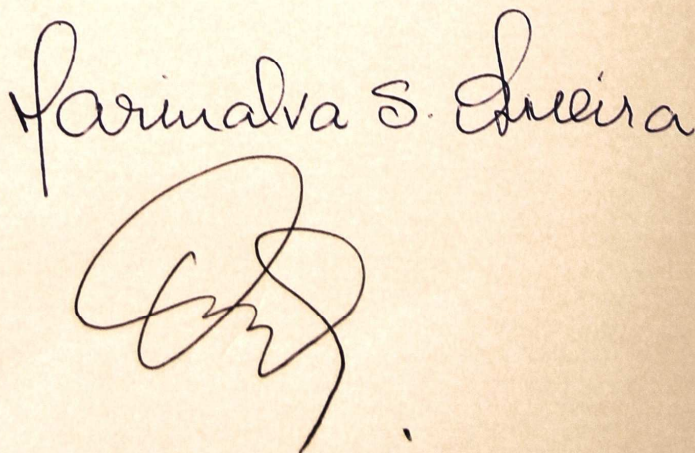 Marinalva S. Oliveira